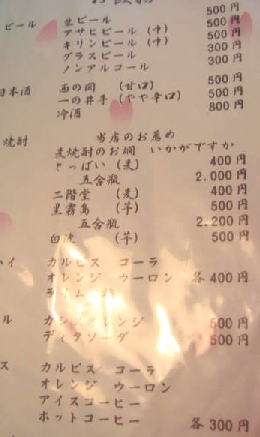 お飲物
ビール 生ビール 500円
アサヒビール (中) 500円
キリンビール (中) 500円
グラスビール 300円
ノンアルコール 300円
日本酒 西の関 (甘口) 500円
一の井手 (やや辛口) 500円
冷酒 800円
焼酎 当店のお薦め
麦焼酎のお燗 いかがですか
とっぱい (麦) 400円
五合瓶 2.000円
二階堂 (麦) 400円
黒霧島 (芋) 500円
五合瓶 2.200円
白波 (芋) 500円
ハイ カルピス コーラ
オレンジ ウーロン 各400円
ライム
ル カシスオレンジ 500円
ディタソーダ 500円
ス カルピス コーラ
オレンジ ウーロン
アイスコーヒー
ホットコーヒー 各300円